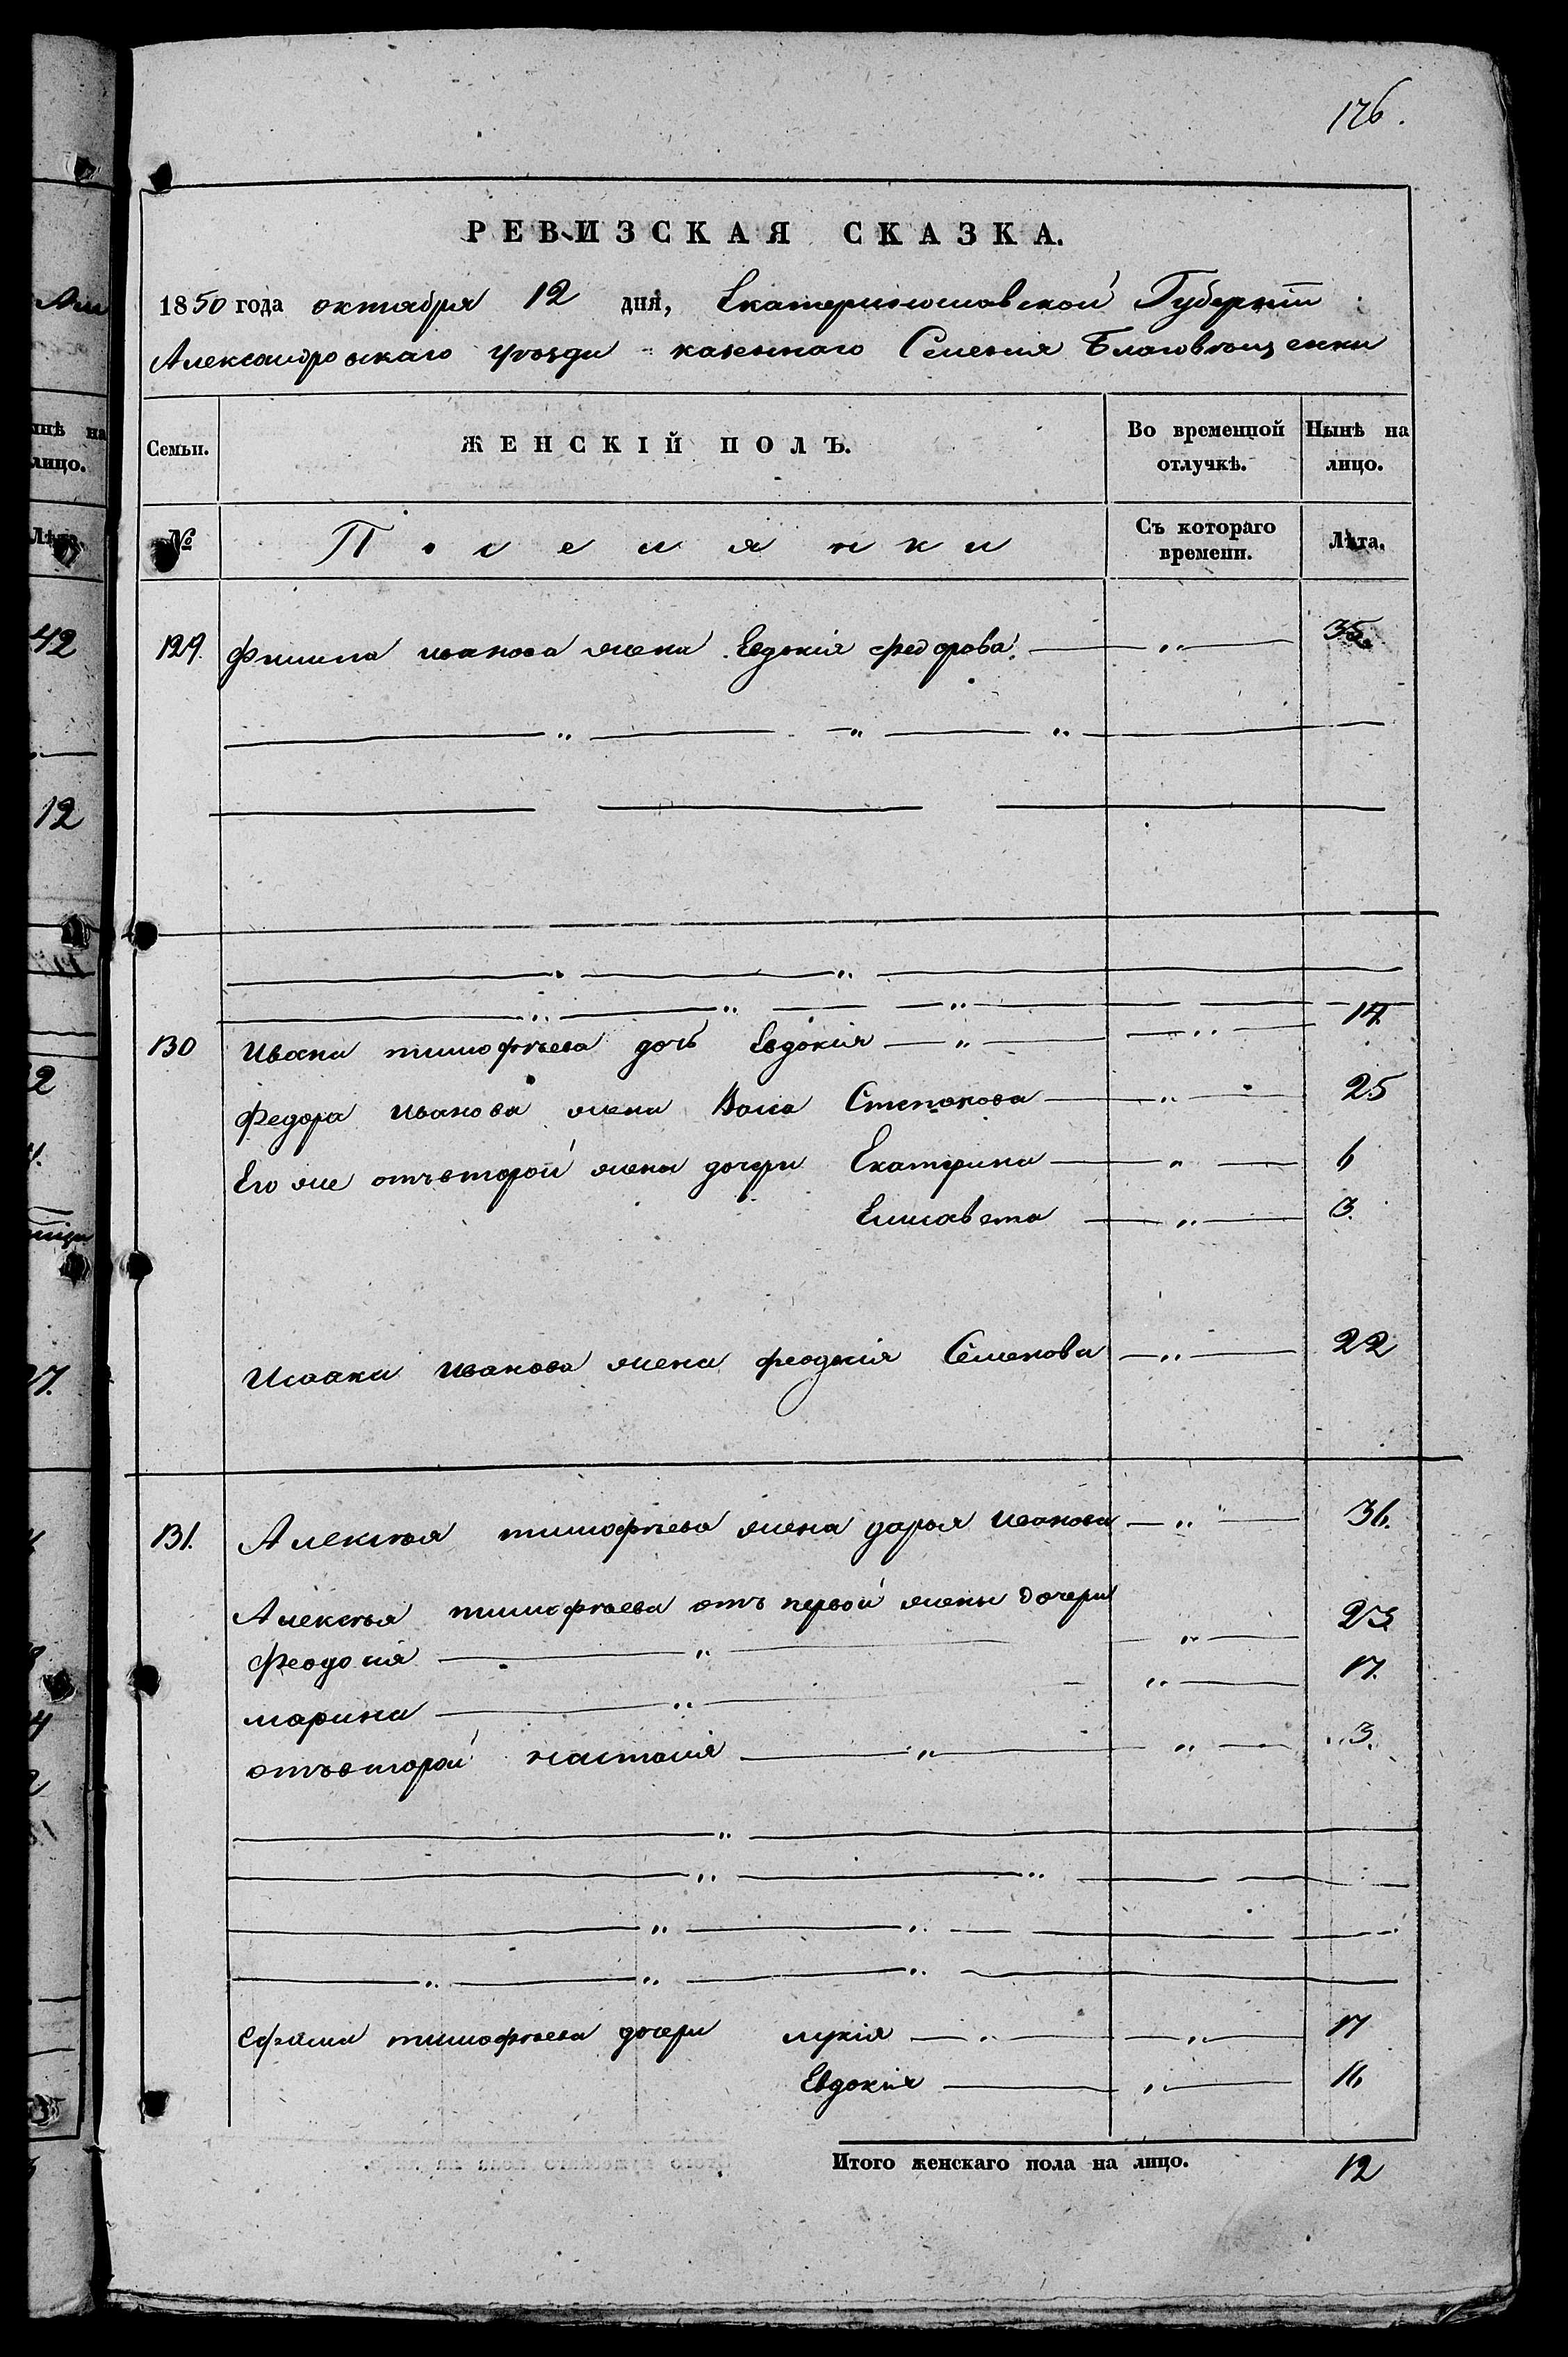 176.
РЕВИЗСКАЯ СКАЗКА.
1850 года октября 12 дня, Екатеринославской Губернiи
Александровскаго уѣзда казеннаго Селенiя Благовѣщенки
Семьи. ЖЕНСКІЙ ПОЛЪ. Во временной отлучкѣ. Нынѣ на лицо.
№ Поселянки Съ котораго времени. Лѣта.
129. Филипа иванова жена Евдокiя федорова. 35.
130 Ивана тимофѣева дочь Евдокiя 14.
Федора иванова жена Васа Степанова 25
Его же отъ второй жены дочери Екатерина 6
Елисавета 3.
Исаака иванова жена феодосiя Семенова 22
131. Алексѣя тимофѣева жена дарья иванова 36.
Алексѣя тимофѣева отъ первой жены дочери
Феодосiя 23
марина 17.
отъ второй настасiя 3.
Ефима тимофѣева дочери лукiя 17
Евдокiя 16
Итого женскаго пола на лицо. 12
нѣ на
лицо.
Лѣта.
42
12